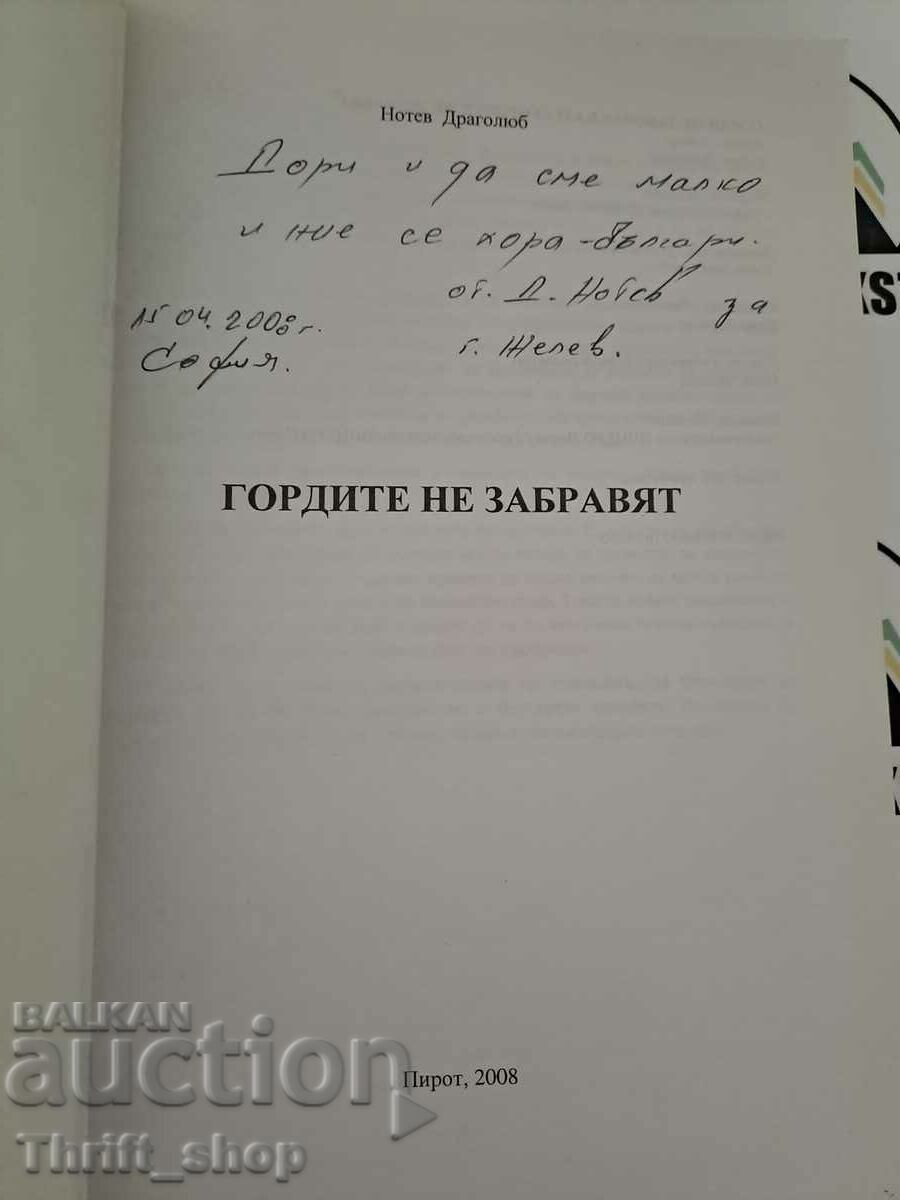 Нотев Драголюб
Дори и да сме малко
и ние се хора - българи.
от. Д. Нотев за
г. Желев.
15 04. 2008 г.
София.
ГОРДИТЕ НЕ ЗАБРАВЯТ
Пирот, 2008
BALKAN
auction
Thrift_shop